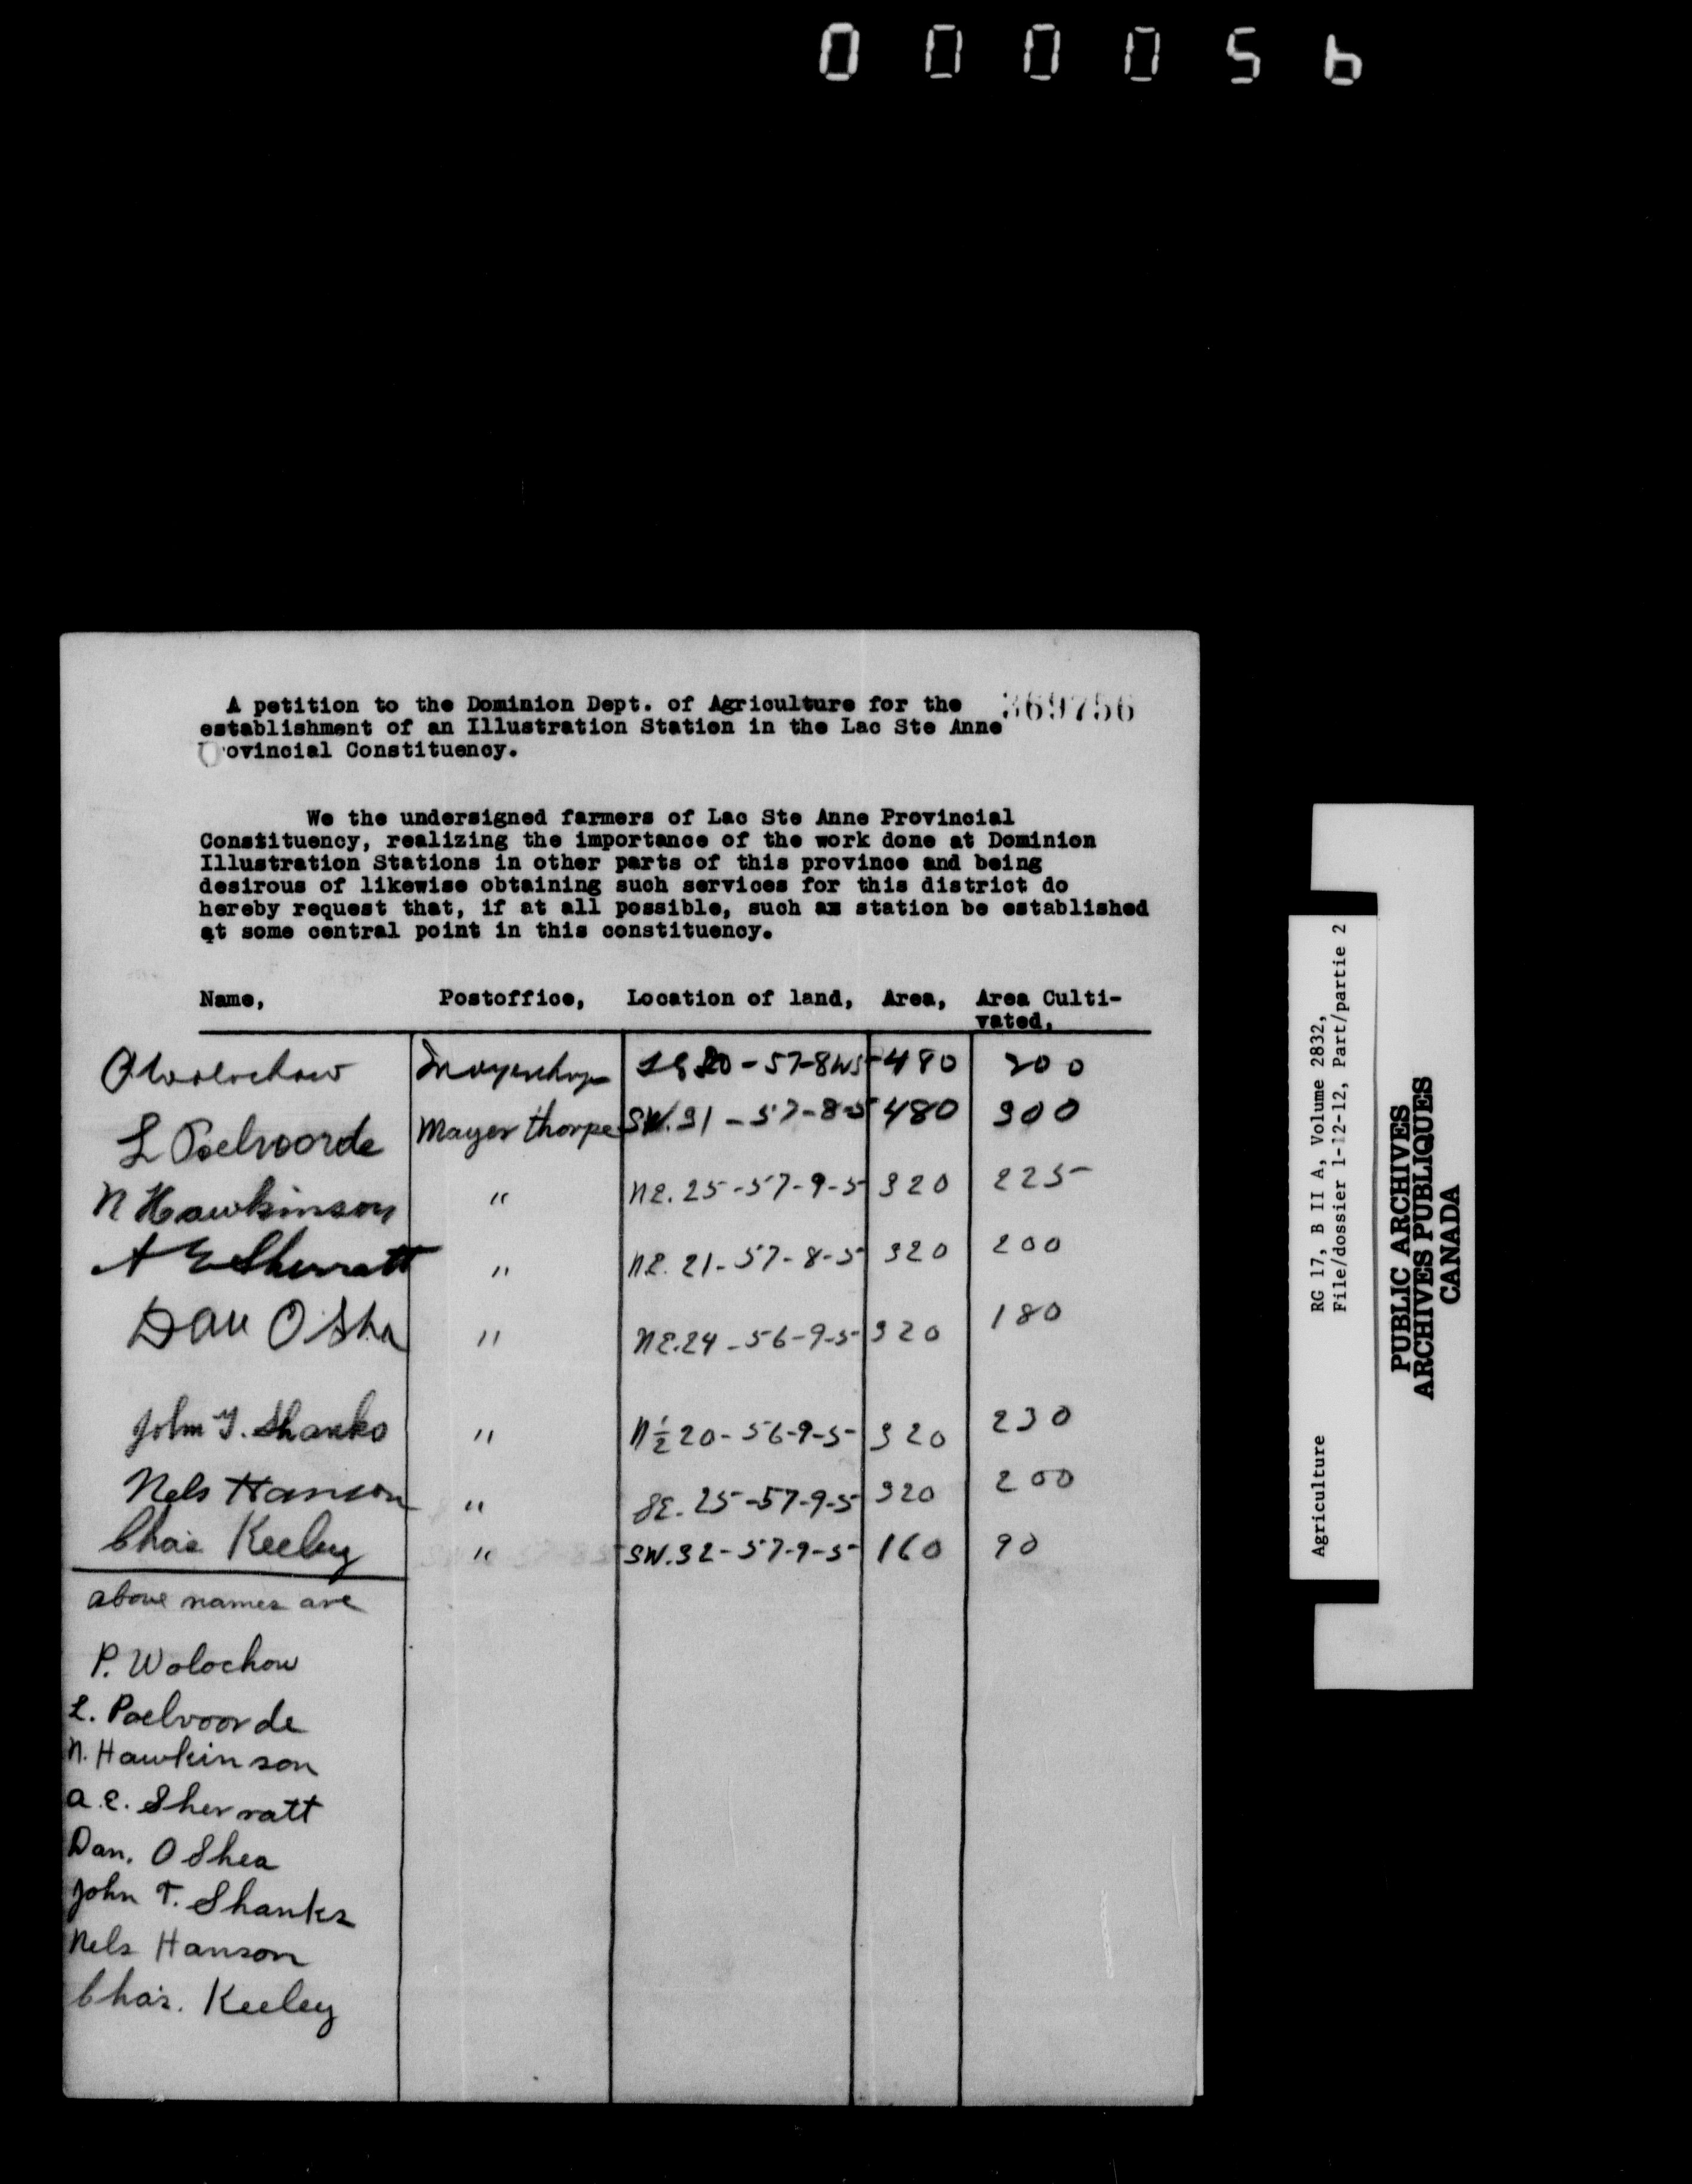 000056
A petition to the Dominion Dept. of Agriculture for the
369756
establishment of an Illustration Station in the Lac Ste Anne
ovincial Constituency.
We the undersigned farmers of Lac Ste Anne Provincial
Constituency, realizing the importance of the work done at Dominion
Illustration Stations in other parts of this province and being
desirous of likewise obtaining such services for this district do
hereby request that, if at all possible, such an station be established
at some central point in this constituency.
Name, Postoffice, Location of land, Area, Area Culti-
vated.
P Wolochow 20-57-8W5 480 200
L Poelvoorde Mayerthorpe SW.31-57-8-5 480 300
N Hawkinson " NE.25-57-9-5 320 225
A E Sherratt " NE.21-57-8-5 320 200
Dan O Shea " NE.24-56-9-5 320 180
John T. Shanks " N½20-56-9-5 320 230
Nels Hanson " SE.25-57-9-5 320 200
Chas Keeley " SW.32-57-9-5 160 90
above names are
P. Wolochow
L. Poelvoorde
N. Hawkinson
A.E. Sherratt
Dan. O Shea
John T. Shanks
Nels Hanson
Chas. Keeley
Agriculture RG 17, B II A, Volume 2832,
File/dossier 1-12-12, Part/partie 2
PUBLIC ARCHIVES
ARCHIVES PUBLIQUES
CANADA